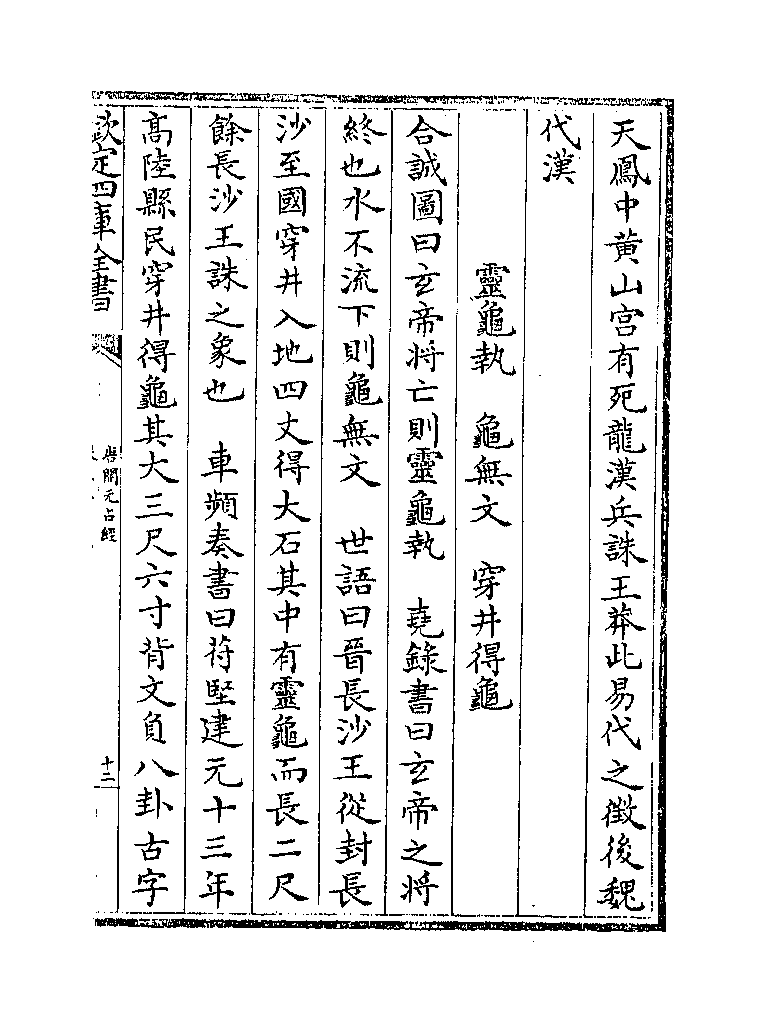 天鳳中黄山宫有死龍漢兵誅王莽此易代之徴後魏
代漢
靈龜執　龜無文　穿井得龜
合誠圖曰玄帝将亡則靈龜執　堯錄書曰玄帝之将
終也水不流下則龜無文　世語曰晉長沙王從封長
沙至國穿井入地四丈得大石其中有靈龜而長二尺
餘長沙王誅之象也　車頻奏書曰苻堅建元十三年
髙陸縣民穿井得龜其大三尺六寸背文負八卦古字
欽定四庫全書
唐開元占經
十二